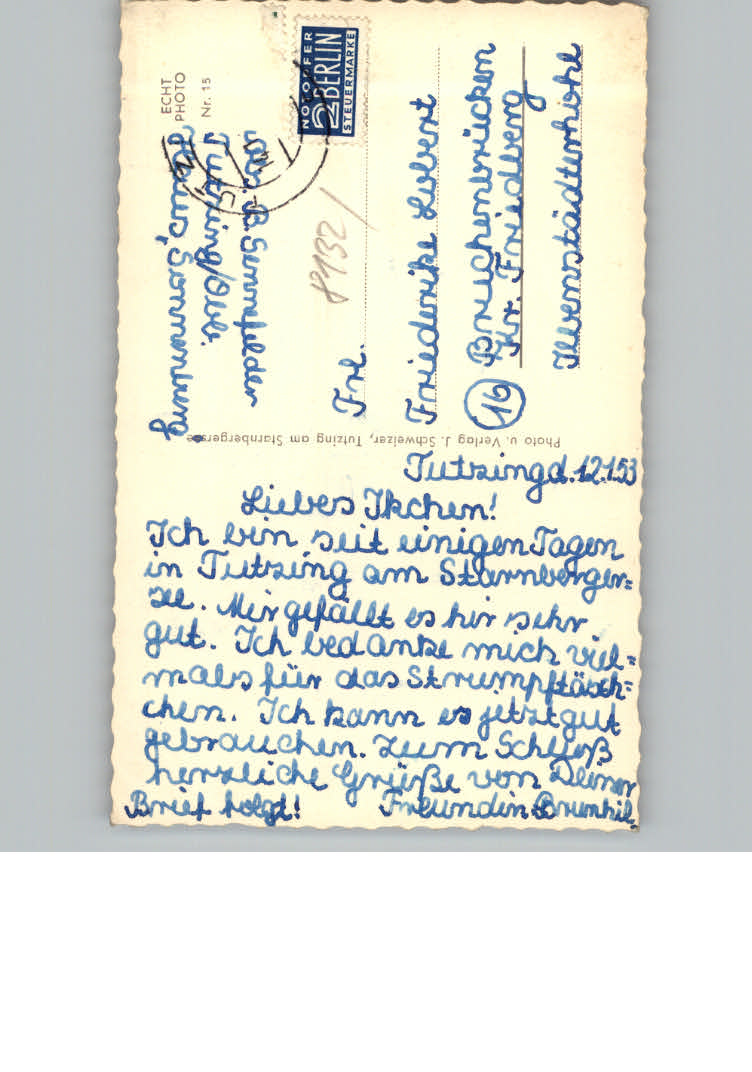 ECHT
PHOTO
Nr. 15
NOTOPFER
2 BERLIN
STEUERMARKE
B. Sennefelder
Tutzing/Obb.
Haus, Sonnenburg
8132/
Frl.
Friederike Lobert
16 Bruchenbrücken
Kr. Friedberg
Ilbenstädterhohl
Photo u. Verlag J. Schweizer, Tutzing am Starnbergersee
Tutzing d. 12.1.53
Liebes Ikchen!
Ich bin seit einigen Tagen
in Tutzing am Starnberger=
see. Mir gefällt es hir sehr
gut. Ich bedanke mich viel=
mals für das Strumpftäsch=
chen. Ich kann es jetzt gut
gebrauchen. Zum Schluß
herzliche Grüße von Deiner
Brief folgt! Freundin Brunhil.